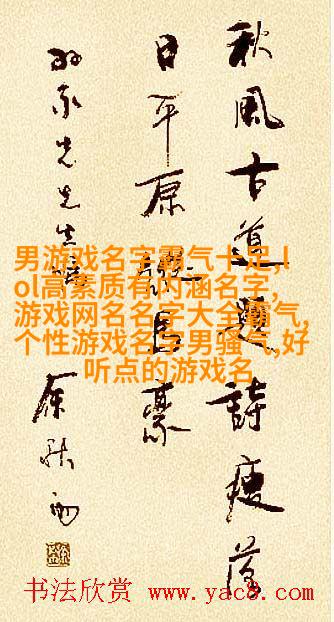 秋風古道題詩瘦落
日平原馬豪
先生
余秋雨
男游戏名字霸气十足,l
ol高素质有内涵名字,
游戏网名名字大全霸气,
个性游戏名字男骚气,好
听点的游戏名
书法欣赏 www.yac8.com